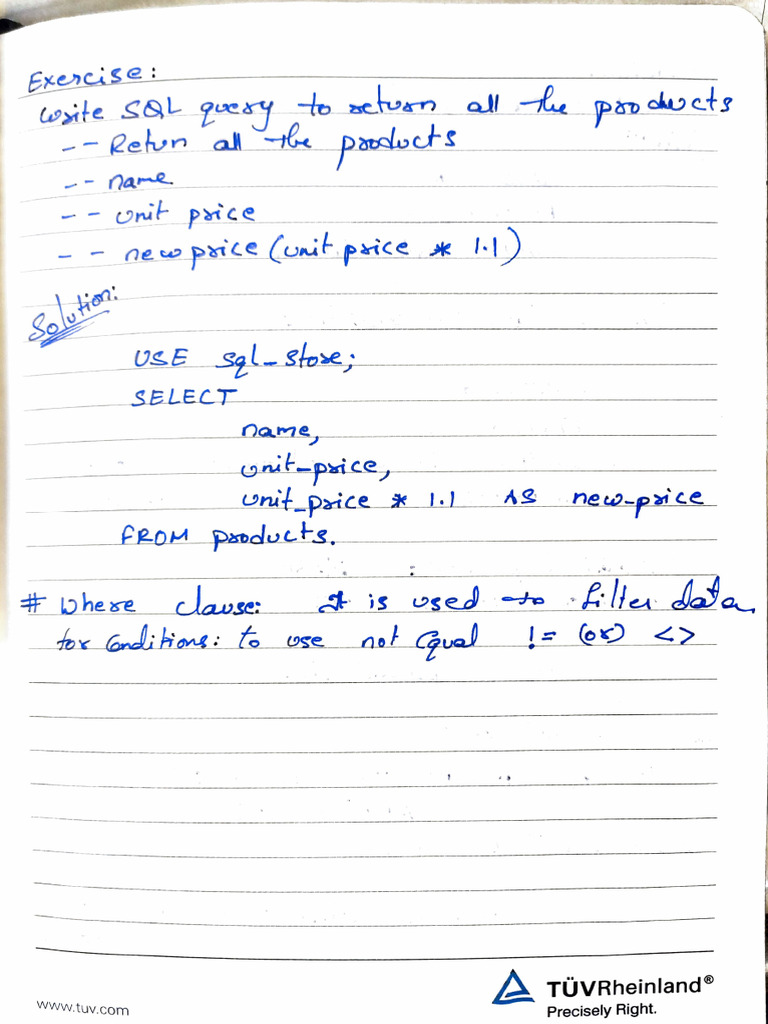 Exercise:
Write SQL query to return all the products
-- Return all the products
-- name
-- unit price
-- new price (unit price * 1.1)
Solution:
USE sql_store;
SELECT
name,
unit_price,
unit_price * 1.1 AS new_price
FROM products.
# Where clause: It is used to filter data,
for Conditions: to use not Equal != (or) <>
www.tuv.com
TÜVRheinland®
Precisely Right.